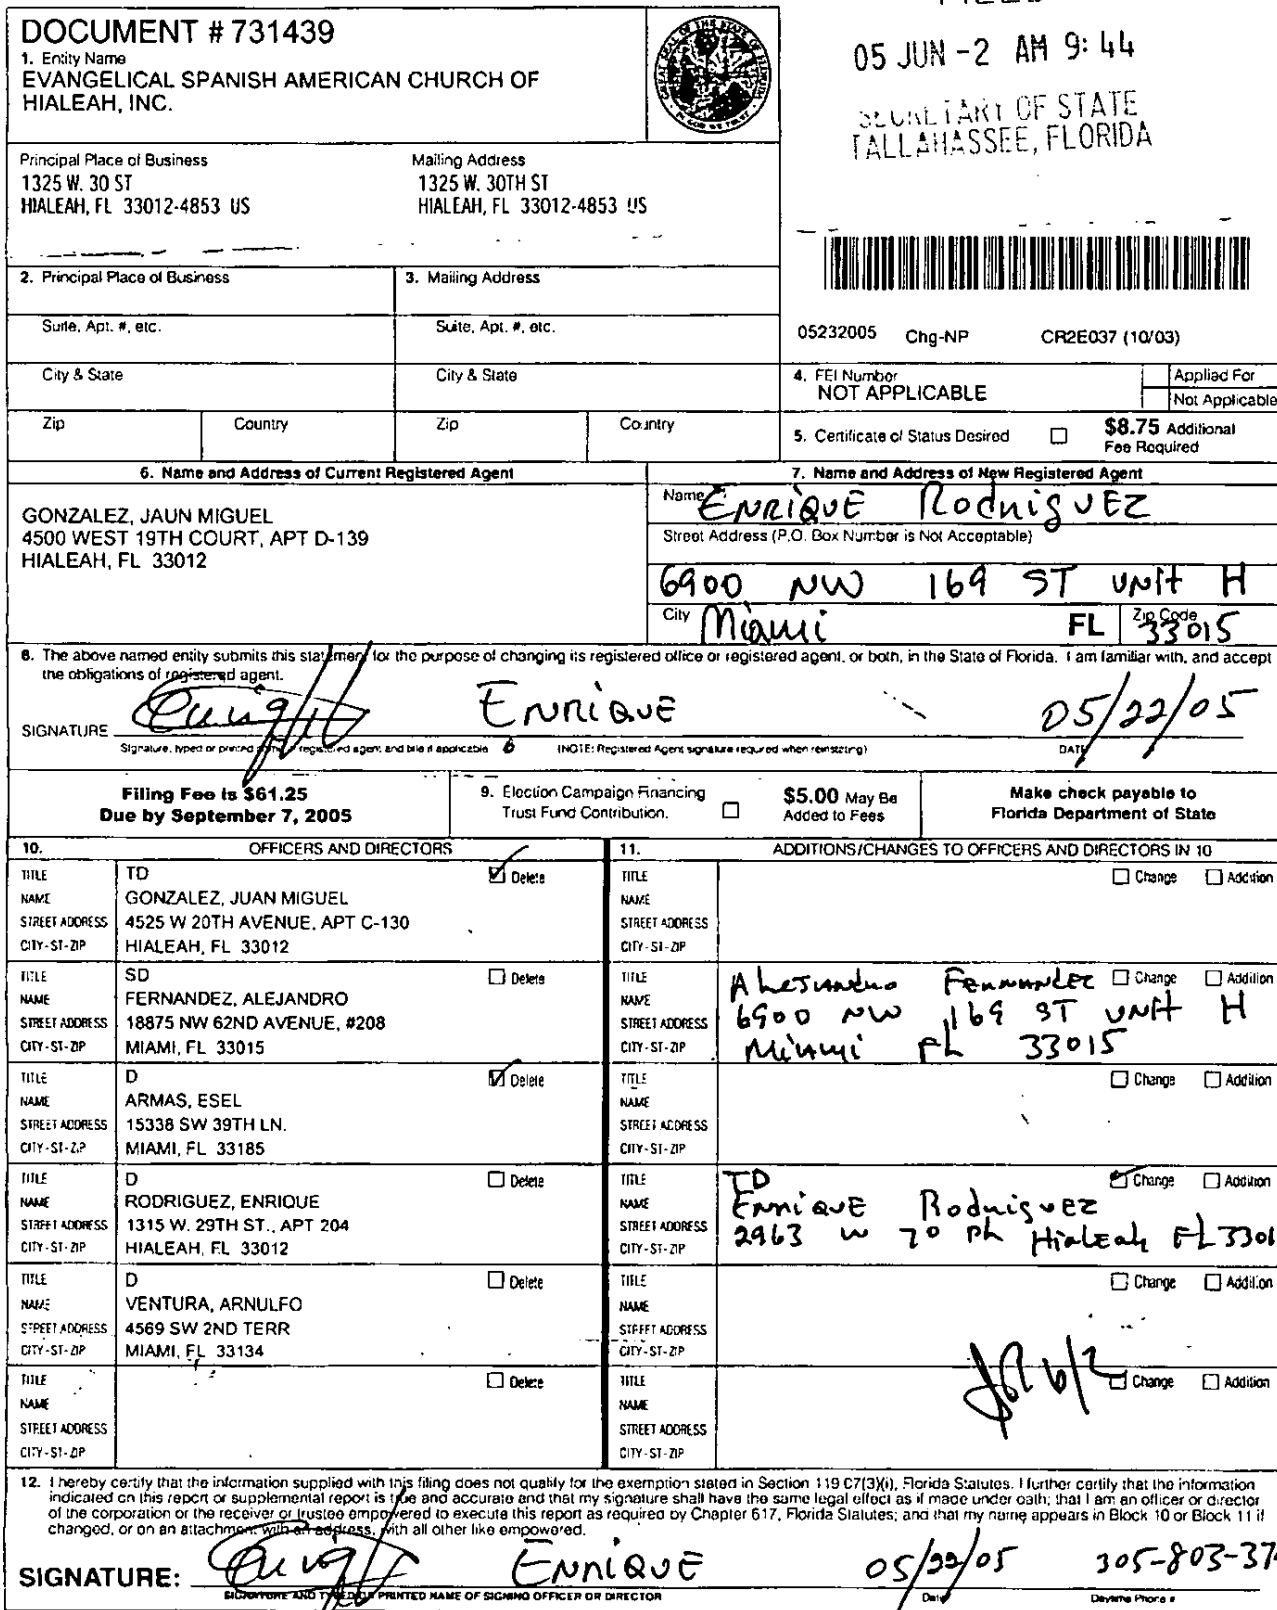 DOCUMENT # 731439
1. Entity Name
EVANGELICAL SPANISH AMERICAN CHURCH OF
HIALEAH, INC.
05 JUN -2 AM 9:44
SECRETARY OF STATE
TALLAHASSEE, FLORIDA
Principal Place of Business
1325 W. 30 ST
HIALEAH, FL 33012-4853 US
Mailing Address
1325 W. 30TH ST
HIALEAH, FL 33012-4853 US
2. Principal Place of Business
3. Mailing Address
Suite, Apt. #, etc.
Suite, Apt. #, etc.
City & State
City & State
Zip
Country
Zip
Country
05232005 Chg-NP CR2E037 (10/03)
4. FEI Number
NOT APPLICABLE
Applied For
Not Applicable
5. Certificate of Status Desired
$8.75 Additional
Fee Required
6. Name and Address of Current Registered Agent
GONZALEZ, JAUN MIGUEL
4500 WEST 19TH COURT, APT D-139
HIALEAH, FL 33012
7. Name and Address of New Registered Agent
Name ENRIQUE RodriguEZ
Street Address (P.O. Box Number is Not Acceptable)
6900 NW 169 ST UNIT H
City Miami FL Zip Code 33015
8. The above named entity submits this statement for the purpose of changing its registered office or registered agent, or both, in the State of Florida. I am familiar with, and accept
the obligations of registered agent.
SIGNATURE ENRiQUE 05/22/05
Signature, typed or printed name of registered agent and title if applicable (NOTE: Registered Agent signature required when reinstating) DATE
Filing Fee is $61.25
Due by September 7, 2005
9. Election Campaign Financing
Trust Fund Contribution.
$5.00 May Be
Added to Fees
Make check payable to
Florida Department of State
10. OFFICERS AND DIRECTORS
11. ADDITIONS/CHANGES TO OFFICERS AND DIRECTORS IN 10
TITLE TD Delete
NAME GONZALEZ, JUAN MIGUEL
STREET ADDRESS 4525 W 20TH AVENUE, APT C-130
CITY-ST-ZIP HIALEAH, FL 33012
TITLE Change Addition
NAME
STREET ADDRESS
CITY-ST-ZIP
TITLE SD Delete
NAME FERNANDEZ, ALEJANDRO
STREET ADDRESS 18875 NW 62ND AVENUE, #208
CITY-ST-ZIP MIAMI, FL 33015
TITLE Change Addition
NAME Alejandro Fernandez
STREET ADDRESS 6900 NW 169 ST UNIT H
CITY-ST-ZIP Miami FL 33015
TITLE D Delete
NAME ARMAS, ESEL
STREET ADDRESS 15338 SW 39TH LN.
CITY-ST-ZIP MIAMI, FL 33185
TITLE Change Addition
NAME
STREET ADDRESS
CITY-ST-ZIP
TITLE D Delete
NAME RODRIGUEZ, ENRIQUE
STREET ADDRESS 1315 W. 29TH ST., APT 204
CITY-ST-ZIP HIALEAH, FL 33012
TITLE TD Change Addition
NAME ENRiQUE RodriguEZ
STREET ADDRESS 2963 W 70 PL Hialeah FL 3301
CITY-ST-ZIP
TITLE D Delete
NAME VENTURA, ARNULFO
STREET ADDRESS 4569 SW 2ND TERR
CITY-ST-ZIP MIAMI, FL 33134
TITLE Change Addition
NAME
STREET ADDRESS
CITY-ST-ZIP
TITLE Delete
NAME
STREET ADDRESS
CITY-ST-ZIP
TITLE Change Addition
NAME
STREET ADDRESS
CITY-ST-ZIP
12. I hereby certify that the information supplied with this filing does not qualify for the exemption stated in Section 119.07(3)(i), Florida Statutes. I further certify that the information
indicated on this report or supplemental report is true and accurate and that my signature shall have the same legal effect as if made under oath; that I am an officer or director
of the corporation or the receiver or trustee empowered to execute this report as required by Chapter 617, Florida Statutes; and that my name appears in Block 10 or Block 11 if
changed, or on an attachment with an address, with all other like empowered.
SIGNATURE: ENRiQUE 05/22/05 305-803-37
SIGNATURE AND TYPED OR PRINTED NAME OF SIGNING OFFICER OR DIRECTOR Date Daytime Phone #